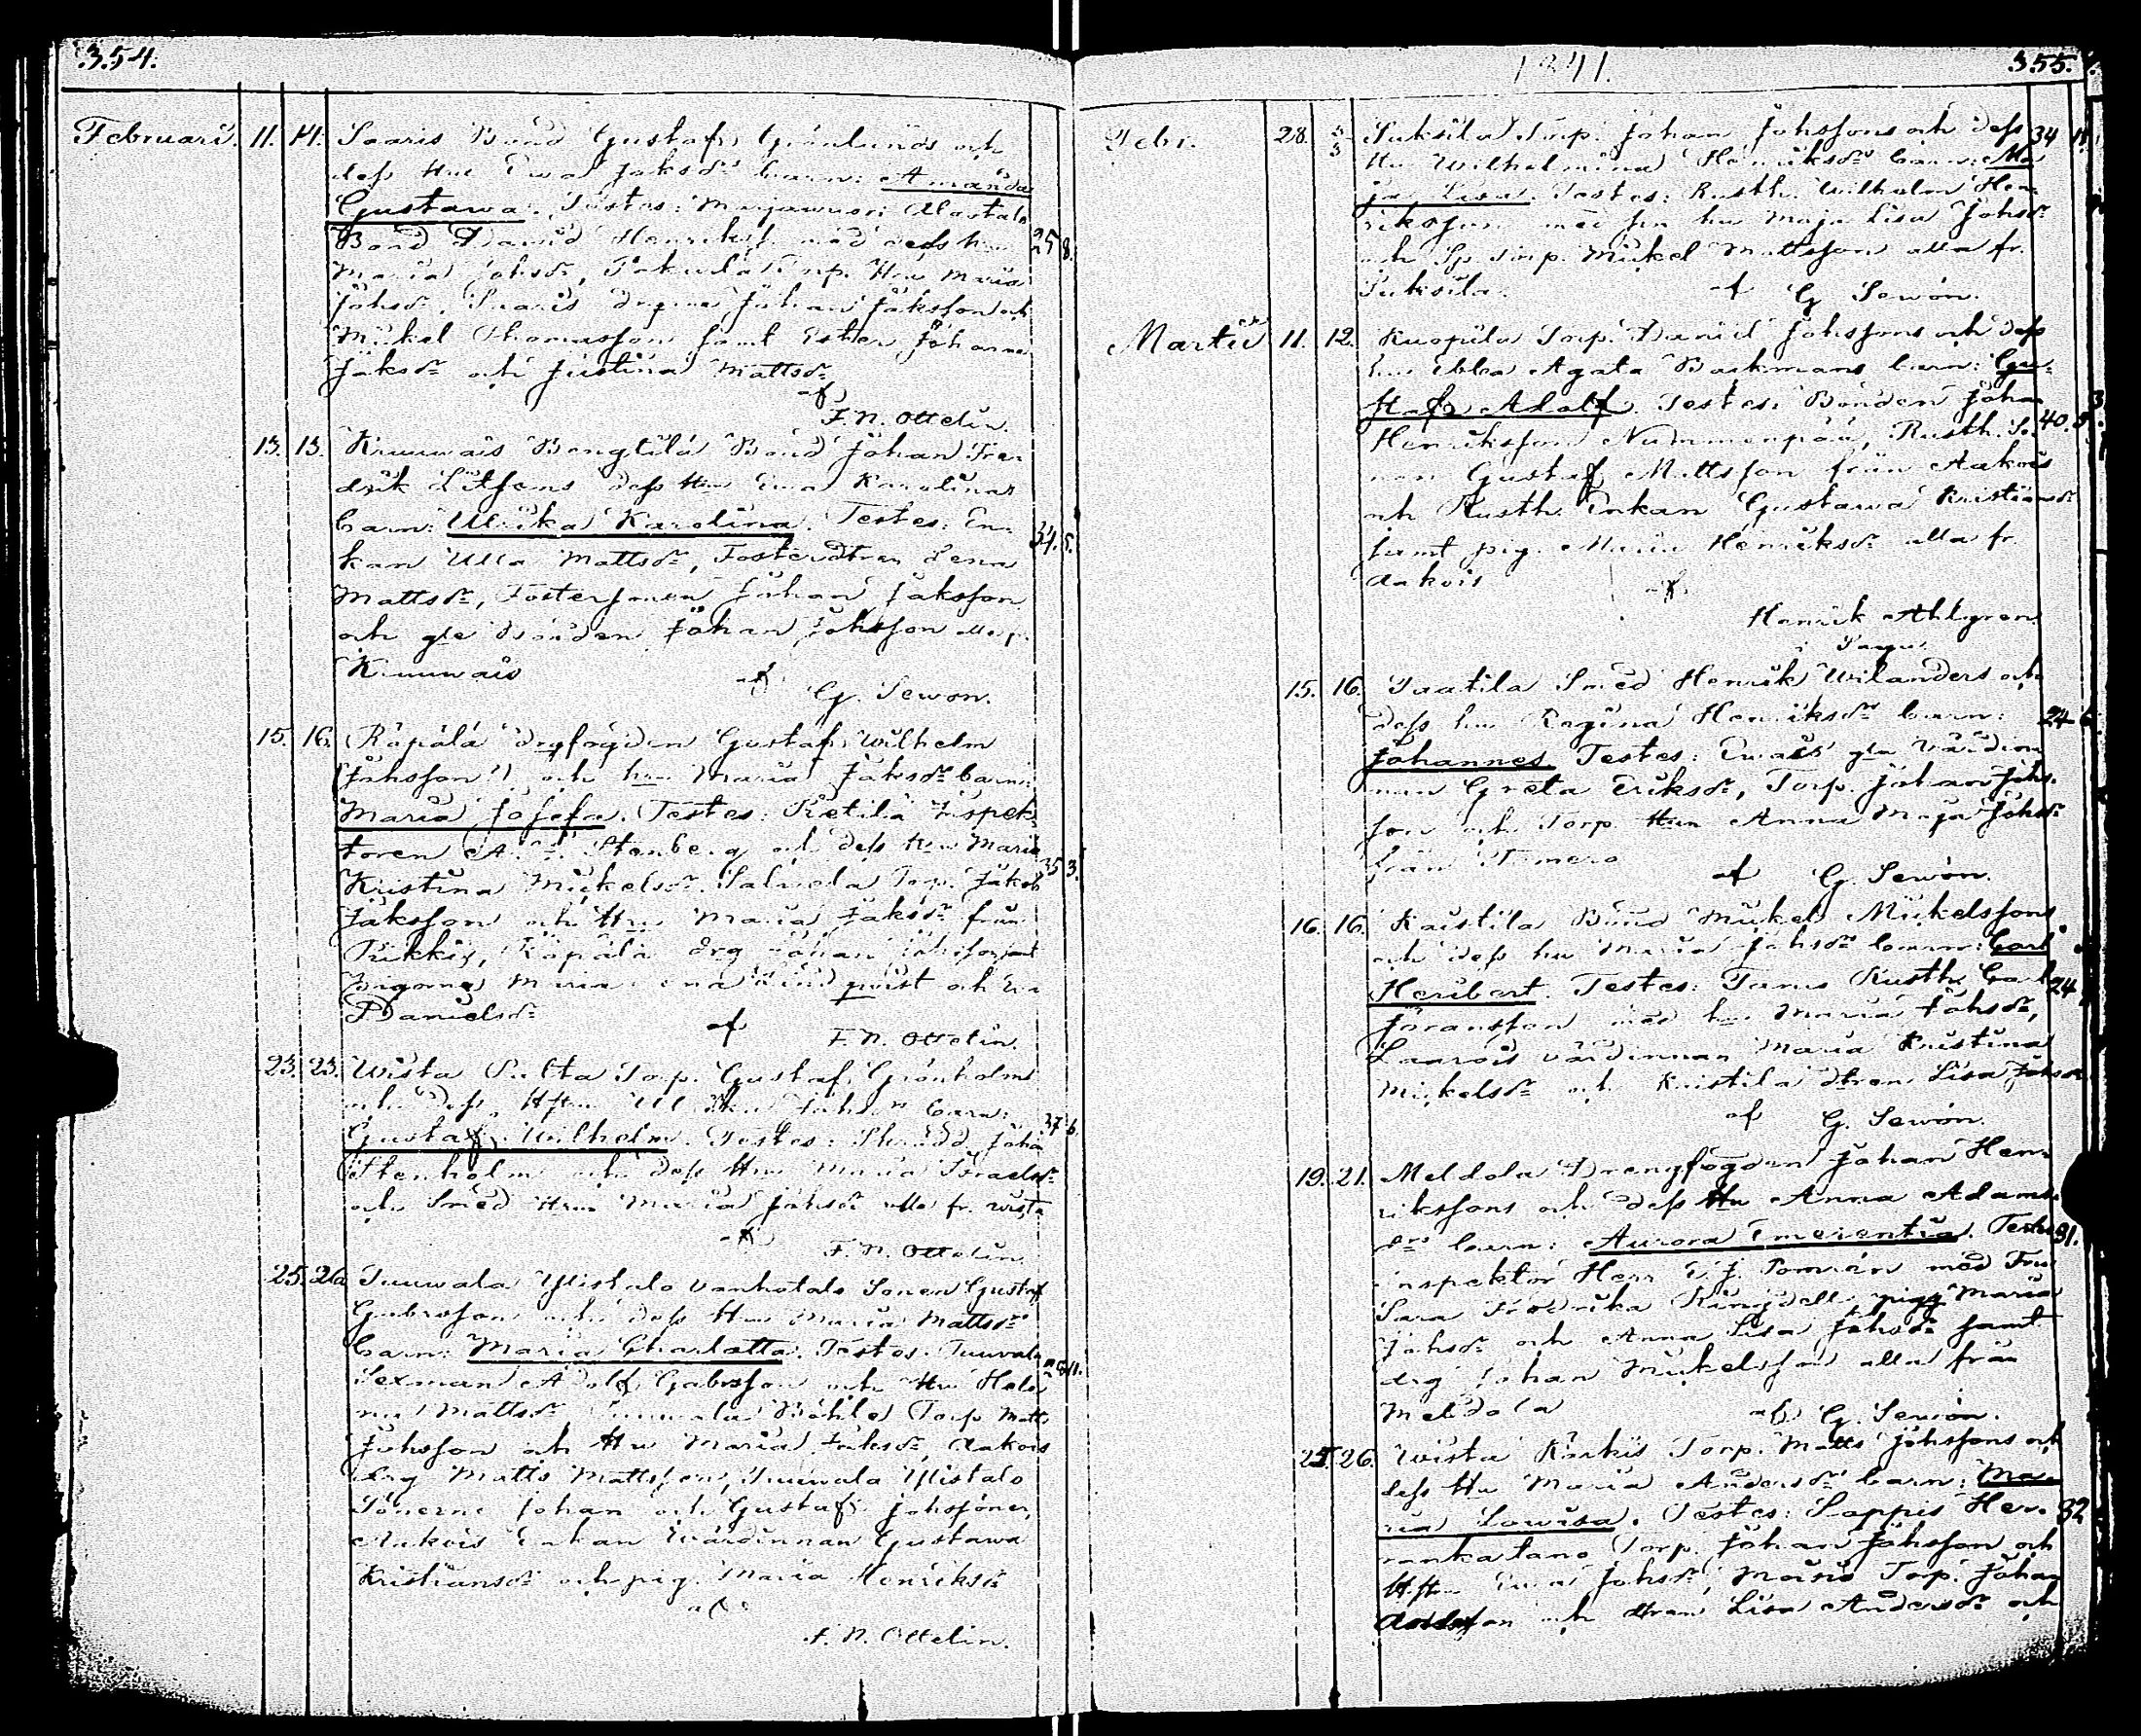 354.
Februari. 11. 14. Saaris Bond Gustaf Grönlunds och
dess Hu Ewa Jaksdr barn: Amanda
Gustawa. Testes: Marjawuori Alastalo
Bond David Henriksf. med dess hu 25 8.
Maria Johsdr, Torp. Hu Maria
Johsdr, Saaris drgarne Johan Jaksson och
Mickel Thomasson samt Esther Johanna
Jaksdr och Justina Mattsdr
af
F. N. Ottelin.
13. 13. Kruuwais Bengtilä Bond Johan Fre-
drik dess Hu Ewa Karolinas
barn: Ulrika Karolina. Testes: En- 34. 5.
kan Ulla Mattsdr, Fosterdtren Lena
Mattsdr, Fostersonen Johan Jaksson
och gle Bonden Johan Johsson alla fr.
Kruuwais
af
G. Sewon.
15. 16. Räpälä drgfogden Gustaf Wilhelm
(Johsson) och hu Maria Jaksdr barn:
Maria Josefa. Testes: Ketilä Inspek-
toren A. Stenberg och dess Hu Maria
Kristina Mickelsdr. Torp. Jakob 35 3.
Jaksson och Hu Maria Jaksdr från
Pikkis, Räpälä drg Johan samt
pigorna Maria Lena Lindqvist och
Danielsdr
af F. N. Ottelin.
23. 23. Wista Torp. Gustaf Grönholms
och dess Hstru Johsdr barn:
Gustaf Wilhelm. Testes: Skrädd. Johan 37 6.
Stenholm och dess Hu Maria Israelsdr
och Smed Hu Maria Johsdr alla fr. Wista
af
F. N. Ottelin.
25. 26. Juuwala Ylistalo Vanhatalo Sonen Gustaf
Gabrsson och dess Hu Maria Mattsdr
barn: Maria Charlotta. Testes. Juuvala
Sexman Adolf Gabrsson och Hu Hele- 11.
na Mattsdr Juuwala Torp Matts
Johsson och Hu Maria Jaksdr, Aakois
drg Matts Mattsson, Juuwala Ylistalo
Sönerne Johan och Gustaf Johssöner,
Aakois Enkan Wärdinnan Gustawa
Kristiansdr och pig. Maria Henriksdr
af
F. N. Ottelin.
1841. 355.
Febr. 28. Suksila Torp. Johan Johssons och dess 34 11.
Hu Wilhelmina Henriksdr barn: Ma-
ja Lisa. Testes: Rusth. Wilhelm Hen-
riksson med sin hu Maja Lisa Johsdr
och Torp. Mickel Mattsson alla fr.
Suksila. af G Sewón.
Martii 11. 12. Kuopila Torp. Daniel Johssons och dess
hu Ebba Agata Backmans barn: Gu-
staf Adolf. Testes: Bonden Johan
Henriksson Nummenpää, Rusth. So- 40.
nen Gustaf Mattsson från Aakois
och Rusth. Enkan Gustawa Kristiansdr
samt pig. Maria Henriksdr alla fr.
Aakois
af
Henrik Ahlgren
15. 16. Smed Henrik Wilanders och
dess hu Regina Henriksdr barn: 24 6
Johannes Testes: gla Värdin-
nan Greta Eriksdr, Torp. Johan Johs-
son och Torp Hun Anna Maja Johsdr
från
af G. Sewón.
16. 16. Kaistila Bond Mickel Mickelssons
och dess hu Maria Johsdr barn: Carl
Heribert. Testes: Rusth. Carl 24
Göransson med hu Maria Johsdr,
Laarois värdinnan Maria Kristina
Mickelsdr och Kaistila dtren Lisa Johsdr
af G. Sewón.
19. 21. Meldola Drengfogden Johan Hen-
rikssons och dess Hu Anna Adams-
drs barn: Aurora Emerentia. Testes 31.
Inspektor Herr E. J. Pomrén med Fru
Sara Fredrika Ringdell, pigg Maria
Johsdr och Anna Lisa Johsdr samt
drg Johan Mickelsson alla från
Meldola af G. Sewón.
25. 26. Wista Torp. Matts Johssons och
dess Hu Maria Andersdr barn: Ma-
ria Lowisa. Testes: Soppis Her- 32
rankatano Torp. Johan Johsson och
Hstru Ewa Johsdr, Torp. Johan
Andersson och dtren Lisa Andersdr och